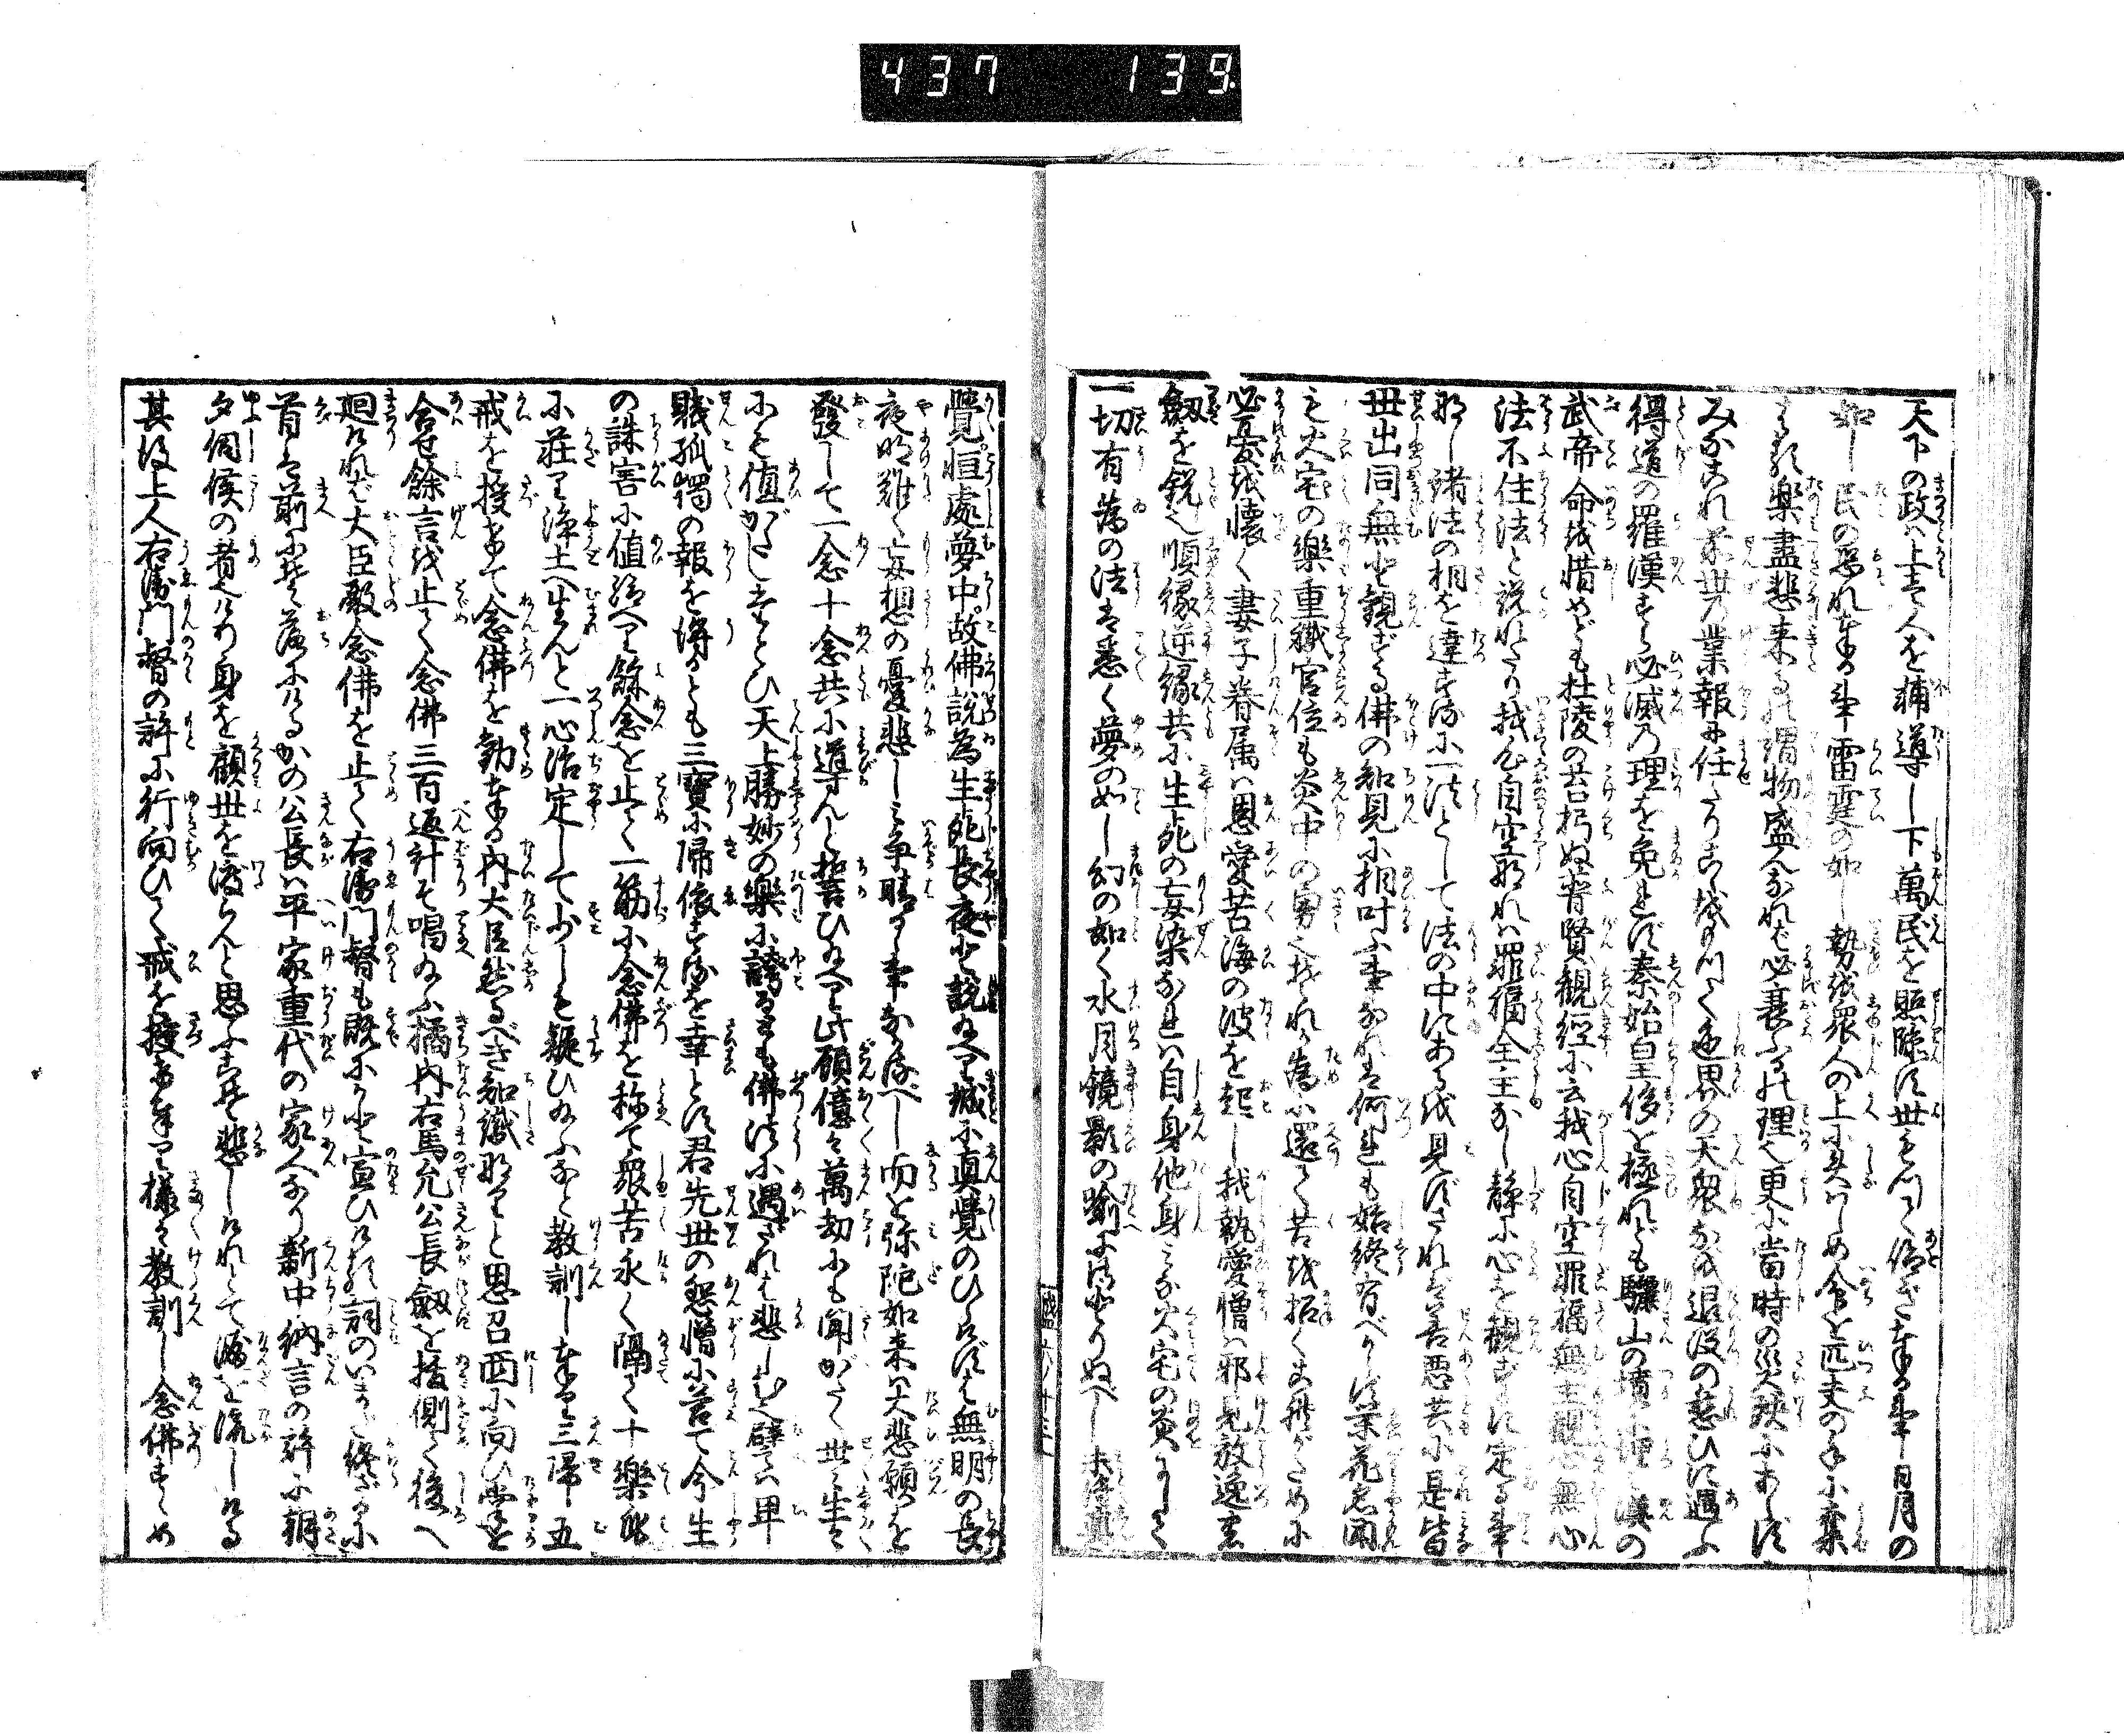 437 139
天下の政は上は人を補導し下萬民を照臨す世をもつて仰ぎ奉る事日月の
如し民の恐れ奉る事雷霆の如し勢を衆人の上に
命を匹夫の手に棄
楽盡悲来る謂物盛んなれば必衰ふる理也更に當時の災殃にあらず
みなこれ前世の業報に任たり色界の天衆なを退没の愁ひに遇ふ
得道の羅漢すら必滅の理を免れず秦始皇侈を極れども驪山の墳に埋も漢の
武帝命を惜めども杜陵の苔に朽ぬ普賢観經に云我心自空罪福無主観心無心
法不住法と説れたり我心自空なれば罪福全主なし静に心を観ずるに定る事
なし諸法の相を達するに一法として法の中にあるを見ずされば善悪共に是皆
世出同無と観ずる佛の知見に相叶ふ事なれば何をも始終有べからず栄花名聞
も火宅の樂重職官位も炎中の
為に還て苦を招くさめに
必憂を懐く妻子眷属は恩愛苦海の波を起し我執愛憎は邪見放逸も
劔を鋭く順縁逆縁共に生死の妄染なれは自身他身みな火宅の炎
一切有為の法は悉く夢のごとし幻の如く水月鏡影の喩
ぬべし未得真
覺恒處夢中故佛説為生死長夜と説給へり誠に真覺のひらけずば無明の長
夜明難く妄想の憂悲しみ争晴る事なるべし而を弥陀如来は大悲願を
發して一念十念共に導んと誓ひ給へり此願億々萬劫にも聞がたく世々生々
にも値がたしたとひ天上勝妙の樂に誇るとも佛法に遇されば悲しむべし譬ば卑
賤孤獨の報を得るとも三寶に帰依するを幸とす君先世の怨憎に答て今生
の誅害に値給へり餘念を止て一筋に念佛を称て衆苦永く隔て十樂
に荘り浄土へ生んと一心治定して少しも疑ひ給ふなと教訓し奉り三帰五
戒を授奉て念佛を勧奉る内大臣然るべき知識なりと思召西に向ひ掌を
合せ餘言を止て念佛三百返計ぞ唱給ふ橘内右馬允公長劔を抜側て後へ
廻ければ大臣殿念佛を止て右衛門督も既にかと宣ひける詞のいまだ終ざるに
首は前にぞ落にけるかの公長は平家重代の家人なり新中納言の許に朝
夕伺候の者也けり身を顧世を渡らんと思ふこそ悲しけれとて涙を流しける
其後上人右衛門督の許に行向ひて戒を授奉り様々教訓し念佛すゝめ